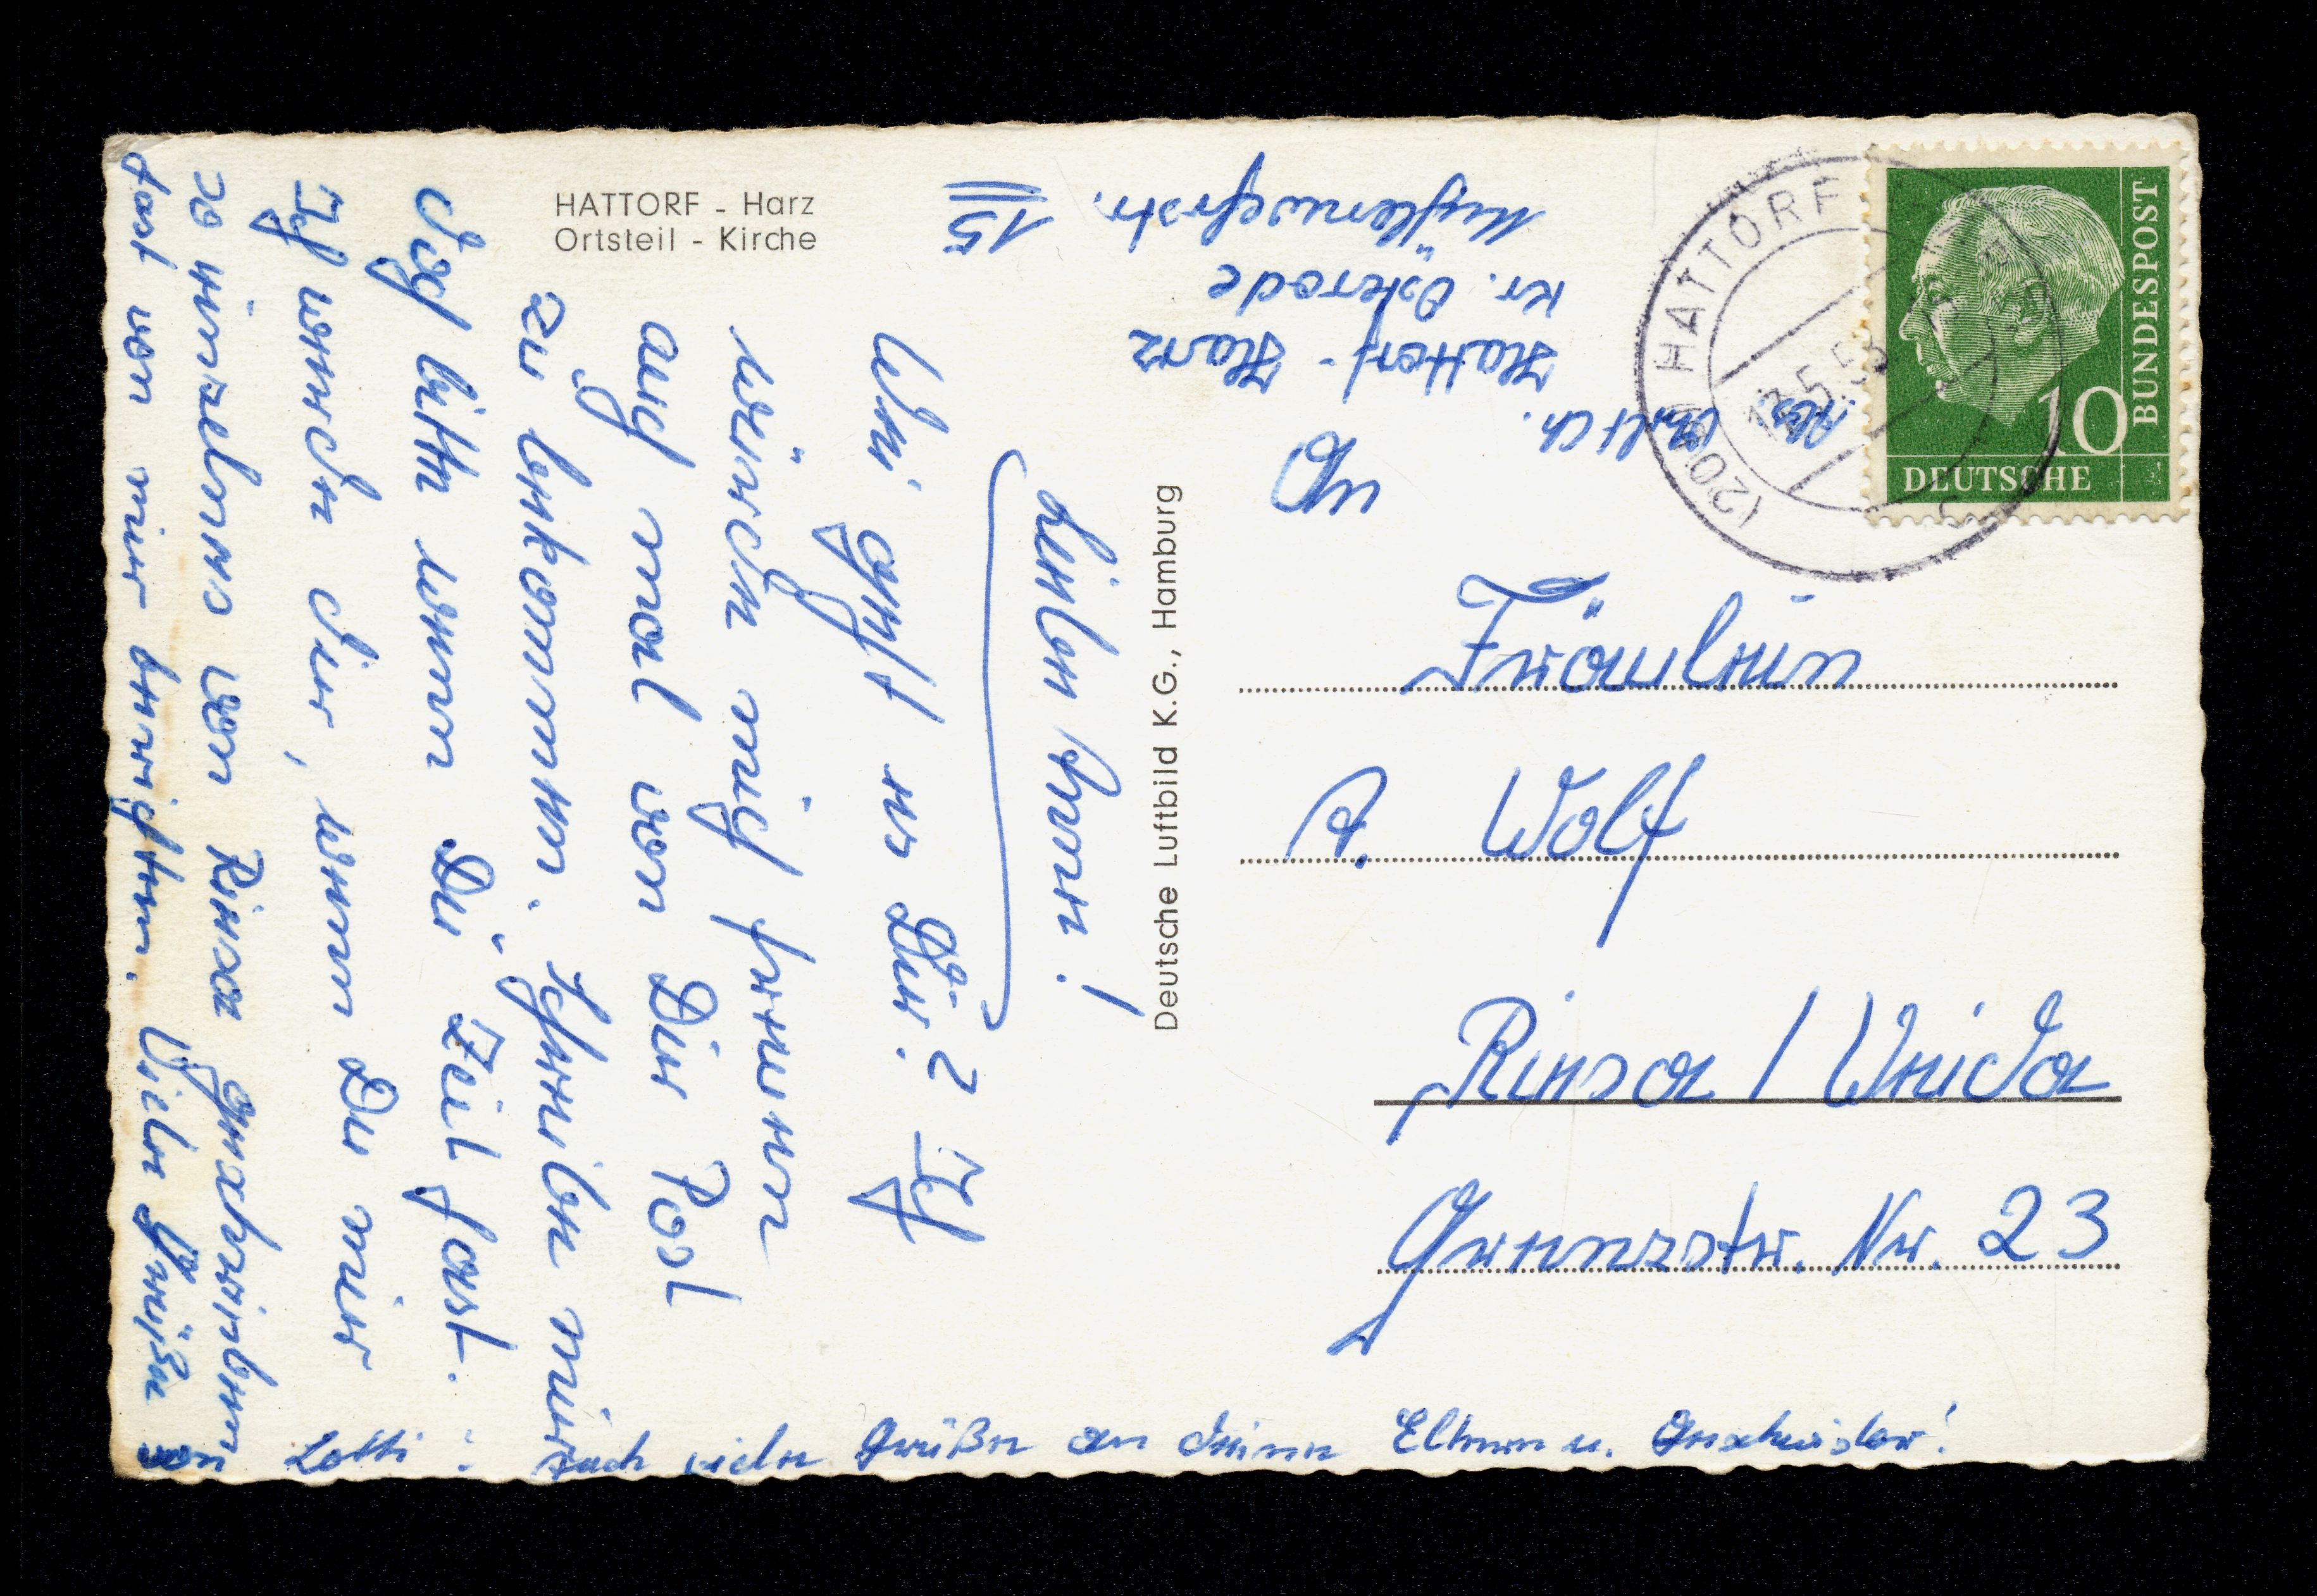 HATTORF - Harz
Ortsteil - Kirche
Deutsche Luftbild K.G., Hamburg
HATTORF
DEUTSCHE
BUNDESPOST
10
Abs.
Hattorf - Harz
Kr. Osterode
Mühlenwehrstr.
15
Fräulein
A. Wolf
Riesa / Weida
Grenzstr. Nr. 23
Liebe Anne!
Wie geht es Dir? Ich
würde mich freuen
auch mal von Dir Post
zu bekommen. Schreibe mir
doch bitte wenn Du Zeit hast.
Ich werde dir, wenn Du mir
so einzelnes von Riesa geschrieben
hast von mir berichten. Viele Grüße
von Lotti! Auch viele Grüße an deine Eltern u. Geschwister!